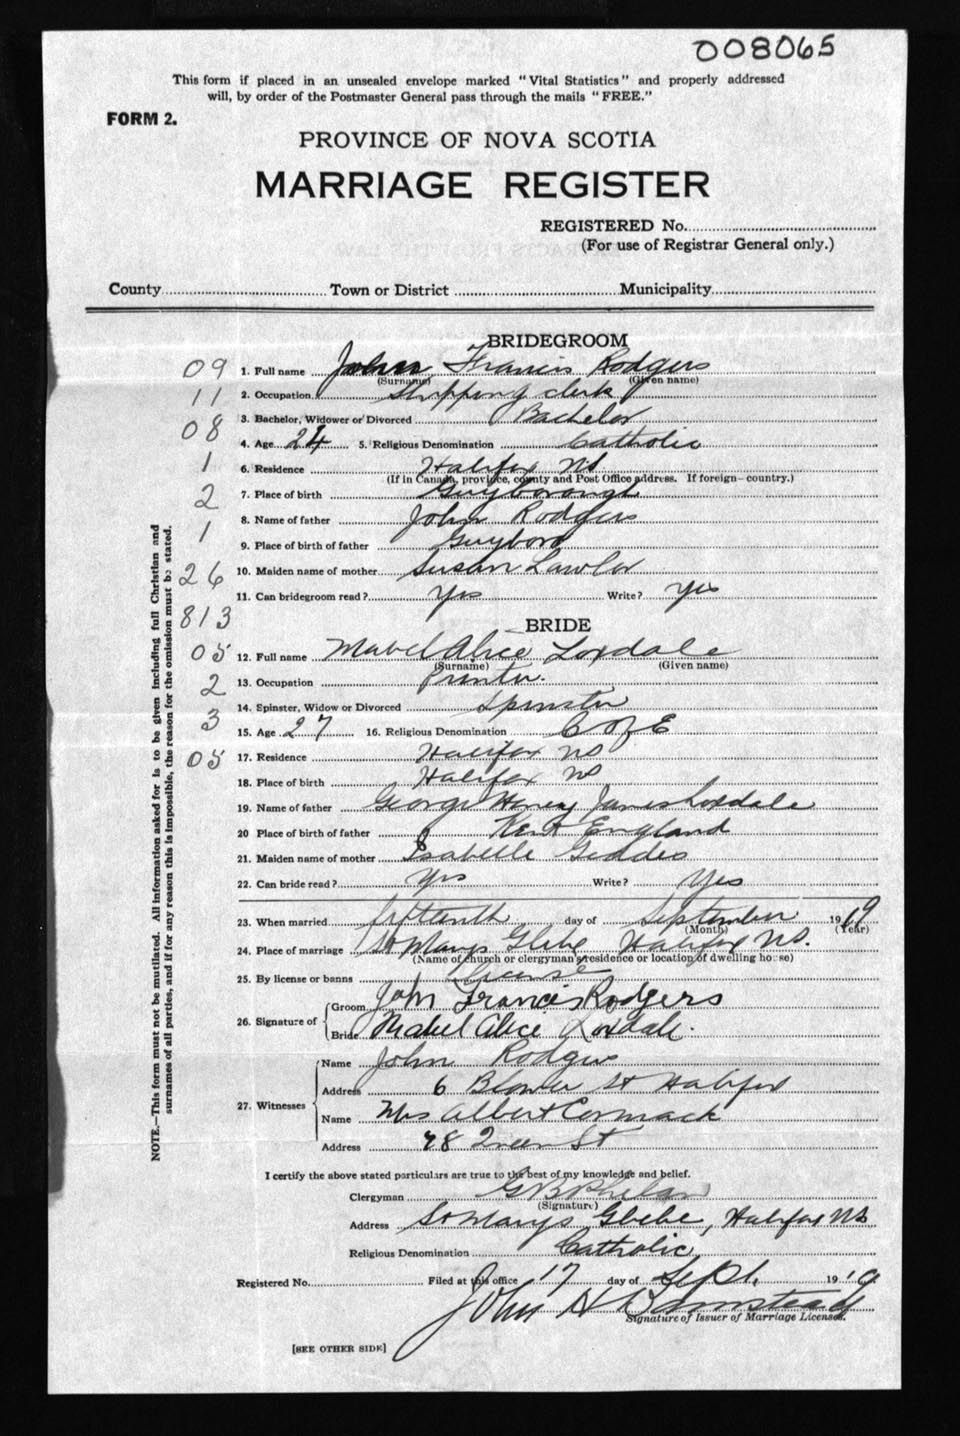 008065
This form if placed in an unsealed envelope marked "Vital Statistics" and properly addressed
will, by order of the Postmaster General pass through the mails "FREE."
FORM 2.
PROVINCE OF NOVA SCOTIA
MARRIAGE REGISTER
REGISTERED No.
(For use of Registrar General only.)
County Town or District Municipality
BRIDEGROOM
09 1. Full name John Francis Rodgers
(Surname) (Given name)
11 2. Occupation Shipping clerk
3. Bachelor, Widower or Divorced Bachelor
08 4. Age 24 5. Religious Denomination Catholic
1 6. Residence Halifax NS
(If in Canada, province, county and Post Office address. If foreign—country.)
2 7. Place of birth Guyborough
8. Name of father John Rodgers
1 9. Place of birth of father Guyboro
26 10. Maiden name of mother Susan Lawlor
11. Can bridegroom read? Yes Write? Yes
813
BRIDE
05 12. Full name Mabel Alice Loxdale
(Surname) (Given name)
2 13. Occupation Printer.
14. Spinster, Widow or Divorced Spinster
3 15. Age 27 16. Religious Denomination C of E
05 17. Residence Halifax NS
18. Place of birth Halifax NS
19. Name of father George Henry James Loxdale
20 Place of birth of father Kent England
21. Maiden name of mother Isabelle Geddes
22. Can bride read? Yes Write? Yes
23. When married fifteenth day of September 1919
(Month) (Year)
24. Place of marriage St Marys Glebe Halifax NS.
(Name of church or clergyman's residence or location of dwelling house)
25. By license or banns License
26. Signature of Groom John Francis Rodgers
Bride Mabel Alice Loxdale.
27. Witnesses Name John Rodgers
Address 6 Blower St Halifax
Name Mrs Albert Cormack
Address 28 Queen St
I certify the above stated particulars are true to the best of my knowledge and belief.
Clergyman G B Phelan
(Signature)
Address St Marys Glebe, Halifax NS
Religious Denomination Catholic
Registered No. Filed at this office 17 day of Sept. 1919
John H
Signature of Issuer of Marriage Licenses.
[SEE OTHER SIDE]
NOTE.—This form must not be mutilated. All information asked for is to be given including full Christian and
surnames of all parties, and if for any reason this is impossible, the reason for the omission must be stated.